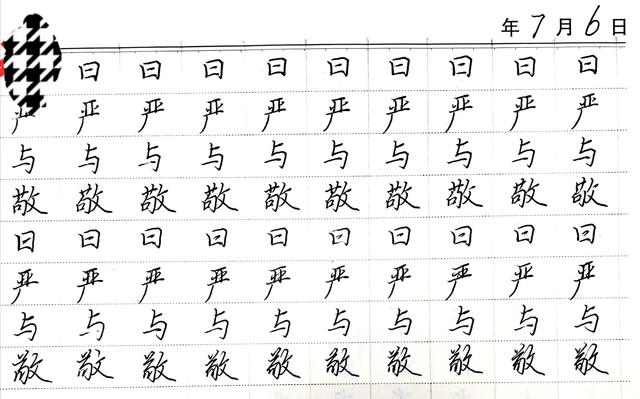 年7月6日
曰 曰 曰 曰 曰 曰 曰 曰 曰
严 严 严 严 严 严 严 严 严 严
与 与 与 与 与 与 与 与 与 与
敬 敬 敬 敬 敬 敬 敬 敬 敬 敬
曰 曰 曰 曰 曰 曰 曰 曰 曰 曰
严 严 严 严 严 严 严 严 严 严
与 与 与 与 与 与 与 与 与 与
敬 敬 敬 敬 敬 敬 敬 敬 敬 敬